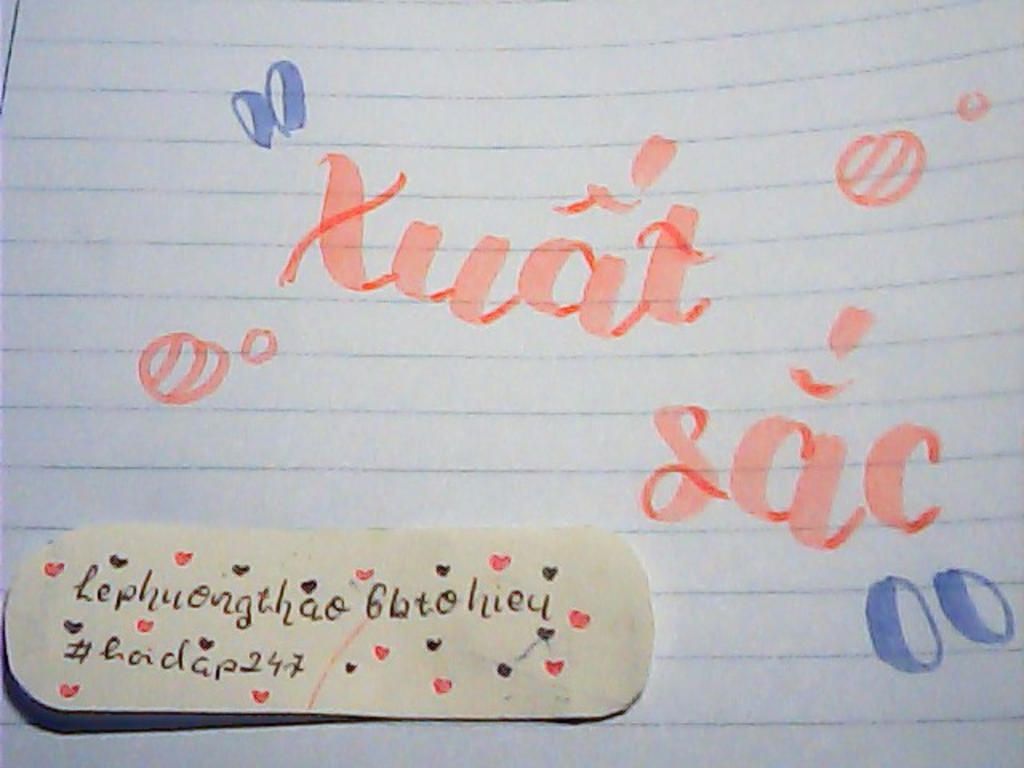 Xuất
sắc
lephuongthao 6btohieu
#hoidap247